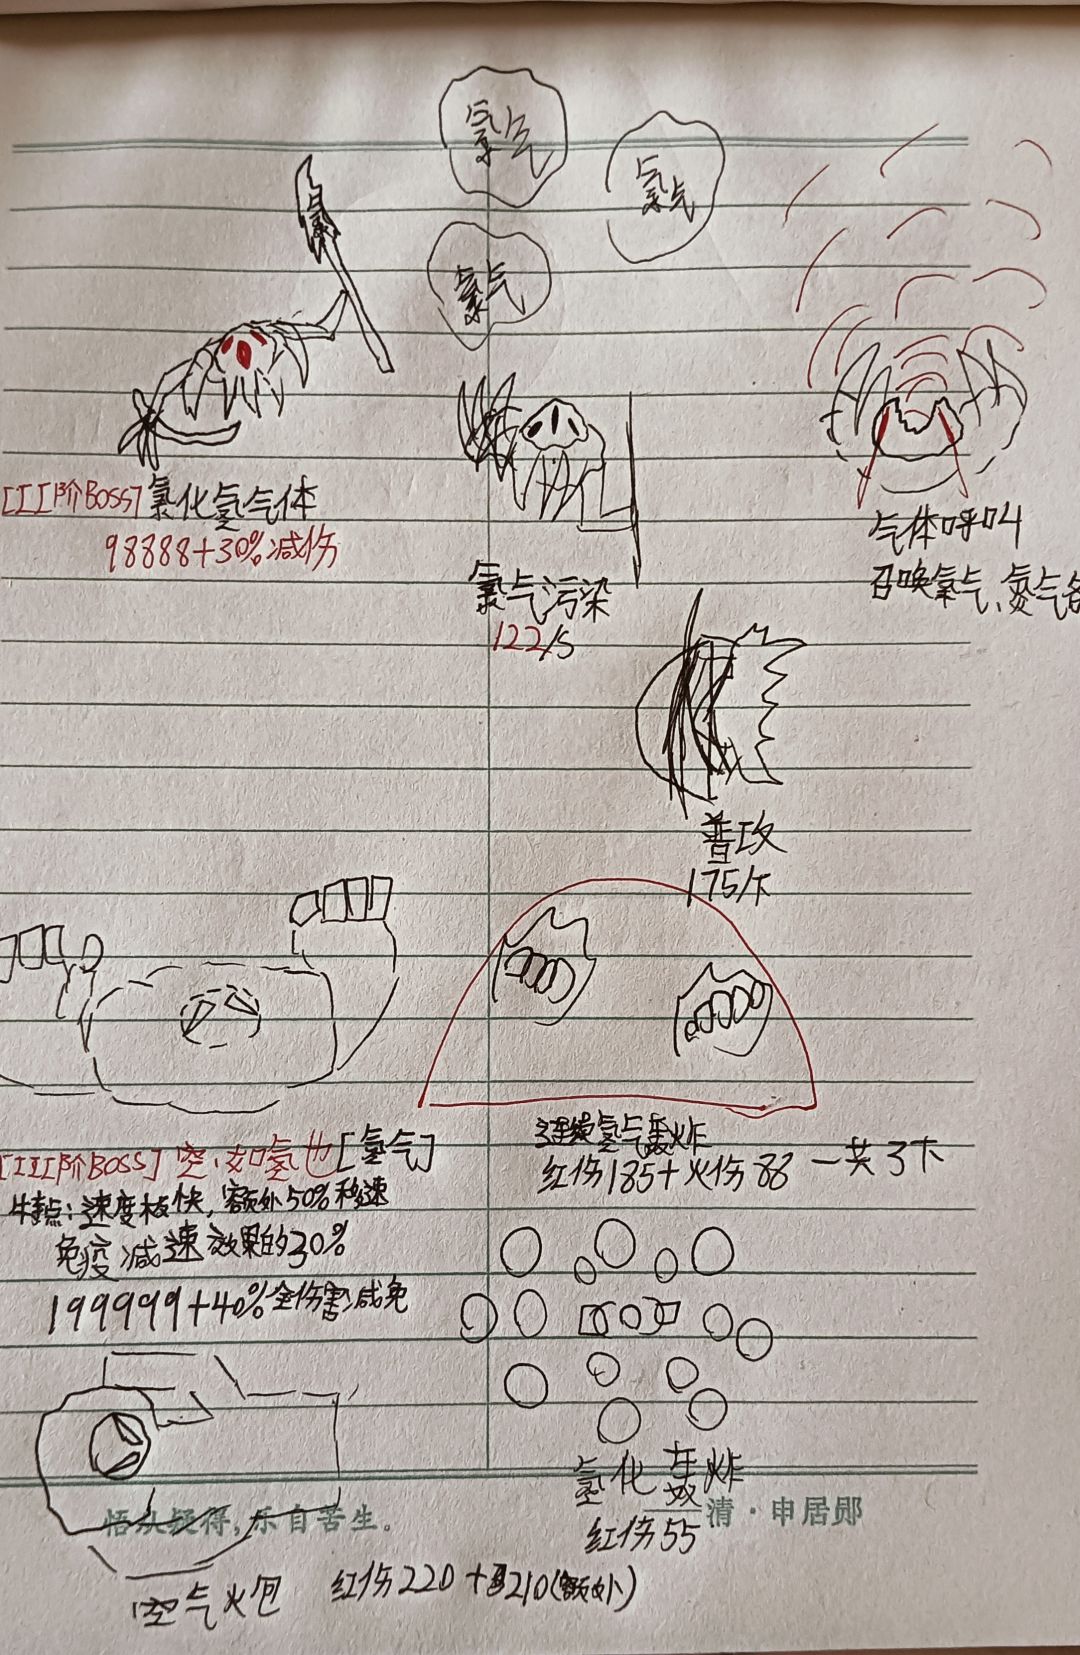 氯气
氯气
氯气
[II阶BOSS]氯化氢气体
98888+30%减伤
氯气污染
122/S
气体呼叫
召唤氧气、氮气各
普攻
175/下
[III阶BOSS]空,如氢也[氢气]
特点:速度极快,额外50%移速
免疫减速效果的30%
199999+40%全伤害减免
连续氢气轰炸
红伤185+火伤88 一共3下
氢化轰炸
红伤55
悟从疑得,乐自苦生。
清·申居郧
空气火包
红伤220+210(额外)